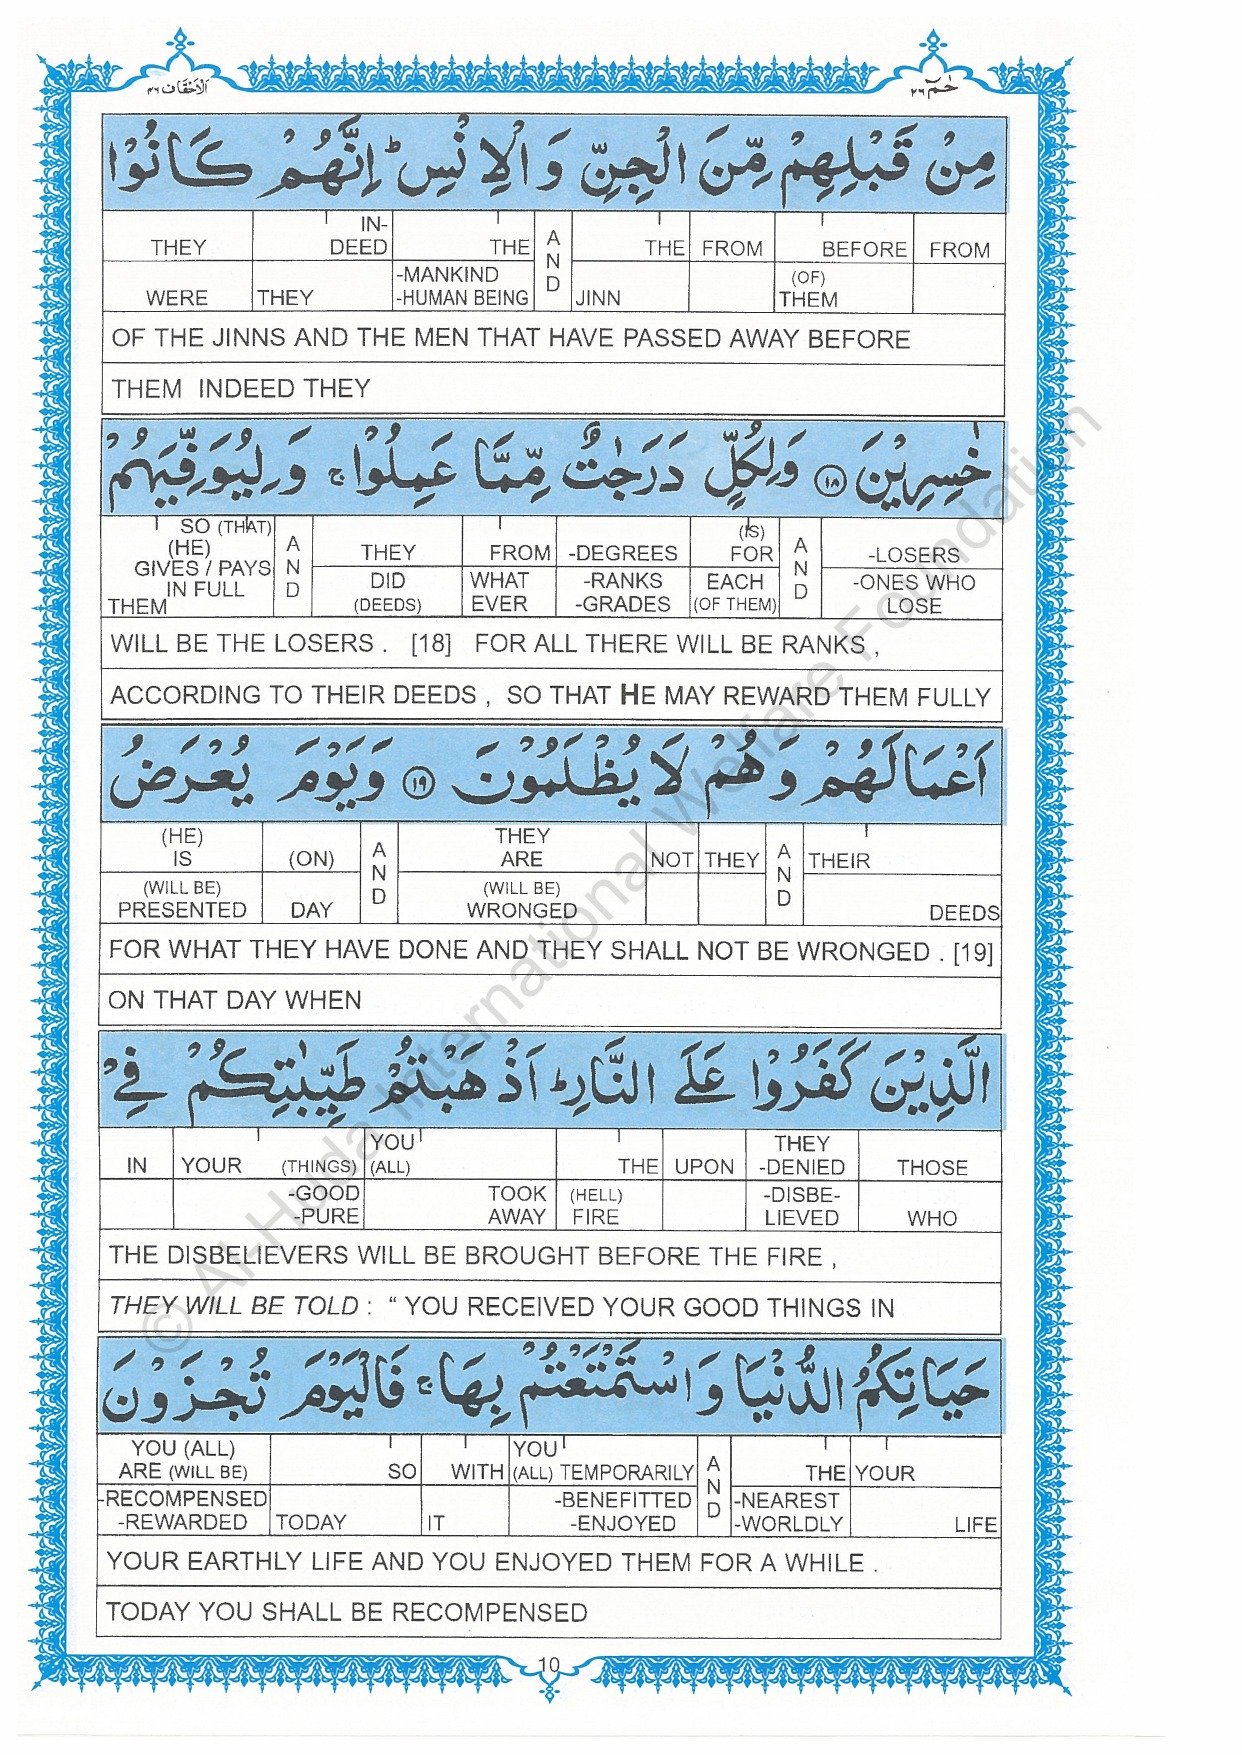 الاحقاف ٤٦
حٰمٓ ٢٦
مِنْ قَبْلِهِمْ مِّنَ الْجِنِّ وَ الْاِنْسِ ؕ اِنَّهُمْ كَانُوْا
THEY IN- THE AND THE FROM BEFORE FROM
DEED
WERE THEY -MANKIND JINN (OF)
-HUMAN BEING THEM
OF THE JINNS AND THE MEN THAT HAVE PASSED AWAY BEFORE
THEM INDEED THEY
خٰسِرِيْنَ ١٨ وَ لِكُلٍّ دَرَجٰتٌ مِّمَّا عَمِلُوْا ۚ وَ لِيُوَفِّيَهُمْ
SO (THAT) AND THEY FROM -DEGREES (IS) AND -LOSERS
(HE) FOR
GIVES / PAYS DID WHAT -RANKS EACH -ONES WHO
IN FULL (DEEDS) EVER -GRADES (OF THEM) LOSE
THEM
WILL BE THE LOSERS . [18] FOR ALL THERE WILL BE RANKS ,
ACCORDING TO THEIR DEEDS , SO THAT HE MAY REWARD THEM FULLY
اَعْمَالَهُمْ وَ هُمْ لَا يُظْلَمُوْنَ ١٩ وَ يَوْمَ يُعْرَضُ
(HE) (ON) AND THEY NOT THEY AND THEIR
IS ARE
(WILL BE) DAY (WILL BE) DEEDS
PRESENTED WRONGED
FOR WHAT THEY HAVE DONE AND THEY SHALL NOT BE WRONGED . [19]
ON THAT DAY WHEN
الَّذِيْنَ كَفَرُوْا عَلَى النَّارِ ؕ اَذْهَبْتُمْ طَيِّبٰتِكُمْ فِيْ
IN YOUR (THINGS) YOU THE UPON THEY THOSE
(ALL) -DENIED
-GOOD TOOK (HELL) -DISBE- WHO
-PURE AWAY FIRE LIEVED
THE DISBELIEVERS WILL BE BROUGHT BEFORE THE FIRE ,
THEY WILL BE TOLD : “ YOU RECEIVED YOUR GOOD THINGS IN
حَيَاتِكُمُ الدُّنْيَا وَ اسْتَمْتَعْتُمْ بِهَا ۚ فَالْيَوْمَ تُجْزَوْنَ
YOU (ALL) SO WITH YOU AND THE YOUR
ARE (WILL BE) (ALL) TEMPORARILY
-RECOMPENSED TODAY IT -BENEFITTED -NEAREST LIFE
-REWARDED -ENJOYED -WORLDLY
YOUR EARTHLY LIFE AND YOU ENJOYED THEM FOR A WHILE .
TODAY YOU SHALL BE RECOMPENSED
10
© Al-Huda International Welfare Foundation